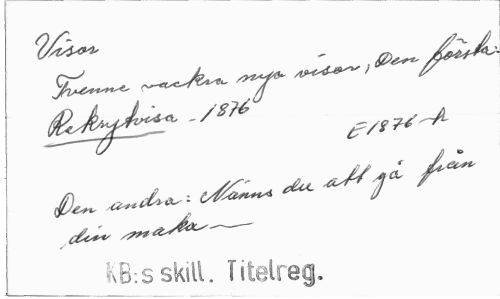 Visor
Tvenne vackra nya visor, Den första:
Rekrytvisa - 1876
E1876-h
Den andra: Nänns du att gå från
din maka —
KB:s skill. Titelreg.